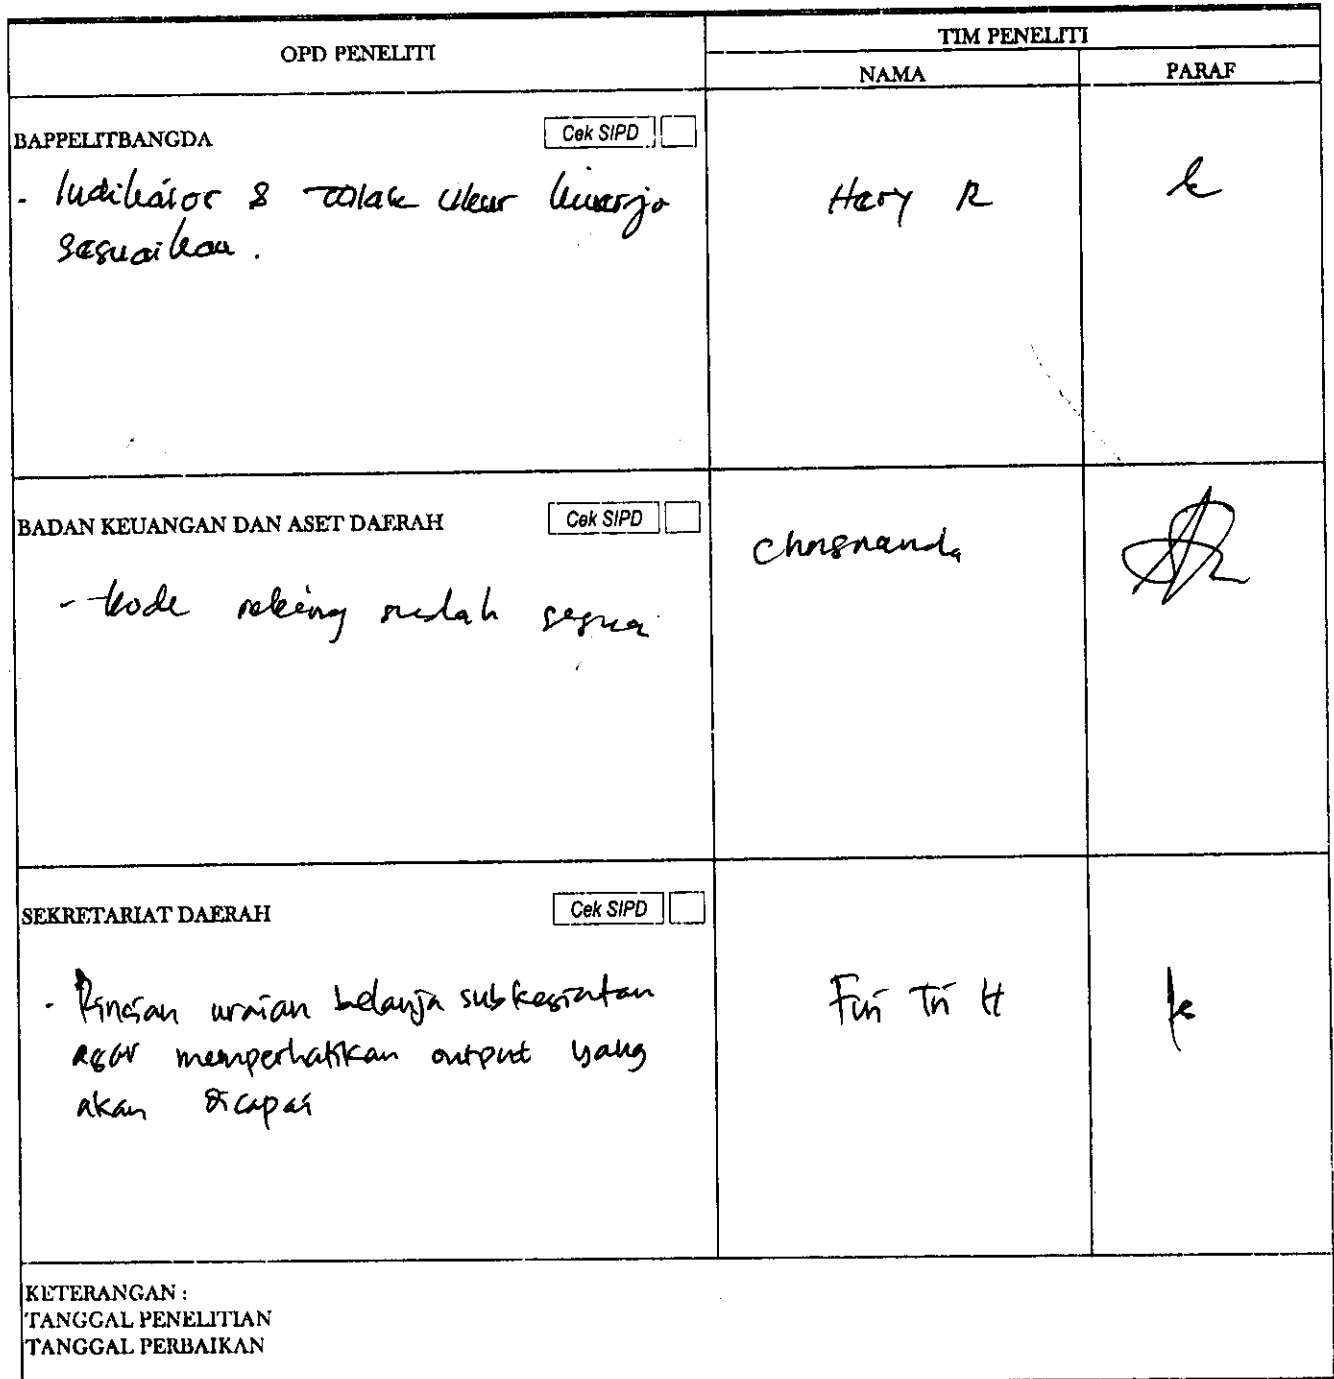 OPD PENELITI
TIM PENELITI
NAMA
PARAF
BAPPELITBANGDA
Cek SIPD
- Indikator & tolak ukur kinerja
sesuaikan.
Hery R
BADAN KEUANGAN DAN ASET DAERAH
Cek SIPD
- kode rekeing sudah sesuai
Chrisnanda
SEKRETARIAT DAERAH
Cek SIPD
- Rincian uraian belanja subkegiatan
agar memperhatikan output yang
akan dicapai
Tri H
KETERANGAN :
TANGGAL PENELITIAN
TANGGAL PERBAIKAN